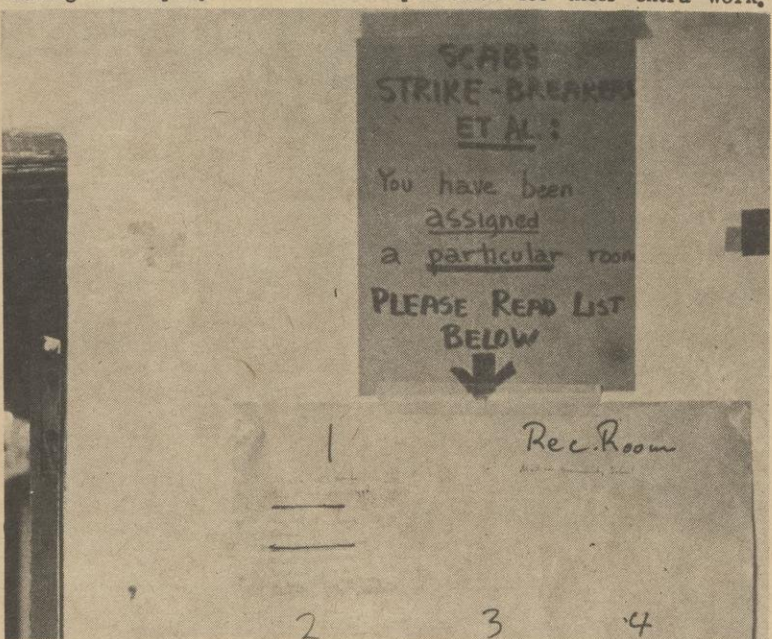 extra work.
SCABS
STRIKE-BREAKERS
ET AL:
You have been
assigned
a particular room
PLEASE READ LIST
BELOW
1 Rec. Room
2 3 4